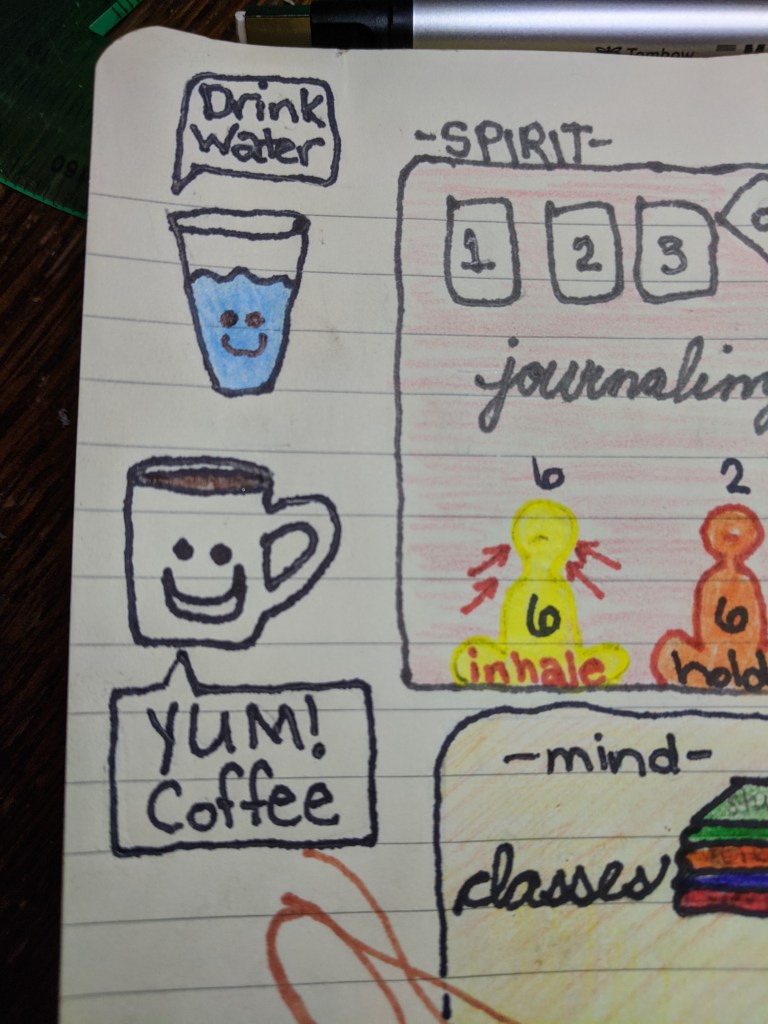 Tombow
60
Drink
Water
-SPIRIT-
1 2 3
journaling
6 2
6 6
inhale hold
YUM!
Coffee
-mind-
classes